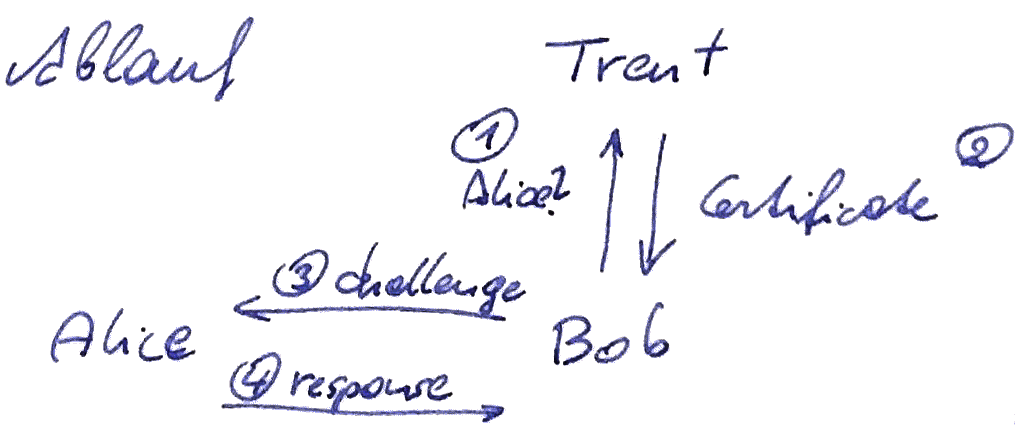 Ablauf
Trent
①
Alice?
Certificate ②
③ challenge
Alice
Bob
④ response